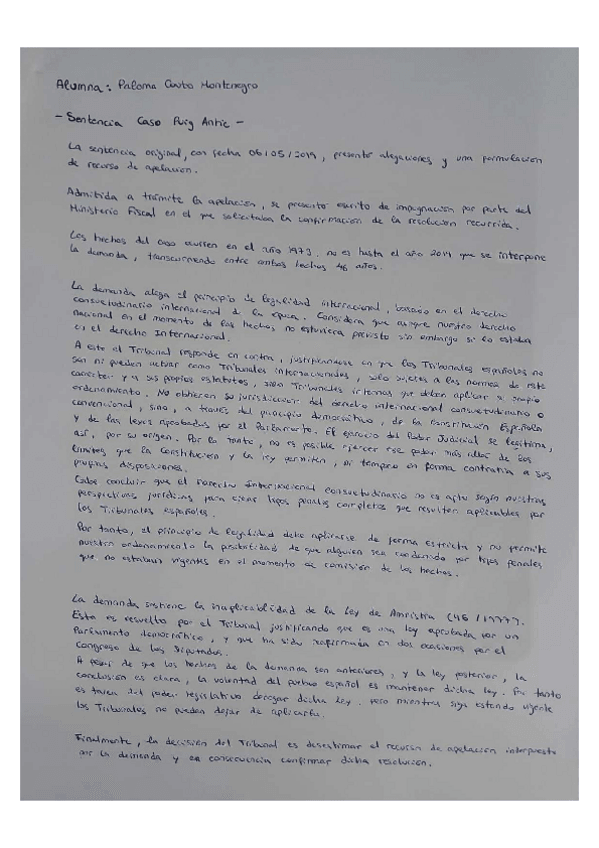 Alumna: Paloma Couto Montenegro
- Sentencia Caso Puig Antic -
La sentencia original, con fecha 06/05/2019, presentó alegaciones y una formulación
de recurso de apelación.
Admitida a trámite la apelación, se presentó escrito de impugnación por parte del
Ministerio Fiscal en el que solicitaba la confirmación de la resolución recurrida.
Los hechos del caso ocurren en el año 1973, no es hasta el año 2019 que se interpone
la demanda, transcurriendo entre ambos hechos 46 años.
La demanda alega el principio de legalidad internacional, basado en el derecho
consuetudinario internacional de la época. Considera que aunque nuestro derecho
nacional en el momento de los hechos, no estuviera previsto sin embargo si lo estaba
en el derecho Internacional.
A esto el Tribunal responde en contra, justificándose en que los Tribunales españoles no
son ni pueden actuar como Tribunales internacionales, solo sujetos a las normas de este
carácter y a sus propios estatutos, sino Tribunales internos que deben aplicar su propio
ordenamiento. No obtienen su jurisdicción del derecho internacional consuetudinario o
convencional, sino, a través del principio democrático, de la Constitución Española
y de las leyes aprobadas por el Parlamento. El ejercicio del Poder Judicial se legitima,
así, por su origen. Por lo tanto, no es posible ejercer ese poder más allá de los
límites que la Constitución y la ley permiten, ni tampoco en forma contraria a sus
propias disposiciones.
Cabe concluir que el Derecho Internacional consuetudinario no es apto según nuestras
perspectivas jurídicas para crear tipos penales completos que resulten aplicables por
los Tribunales españoles.
Por tanto, el principio de legalidad debe aplicarse de forma estricta y no permite
nuestro ordenamiento la posibilidad de que alguien sea condenado por tipos penales
que no estaban vigentes en el momento de comisión de los hechos.
La demanda sostiene la inaplicabilidad de la Ley de Amnistía (46/1977).
Esta es resuelto por el Tribunal justificando que es una ley aprobada por un
Parlamento democrático, y que ha sido reafirmada en dos ocasiones por el
Congreso de los Diputados.
A pesar de que los hechos de la demanda son anteriores, y la ley posterior, la
conclusión es clara, la voluntad del pueblo español es mantener dicha ley. Por tanto
es tarea del poder legislativo derogar dicha ley, pero mientras siga estando vigente
los Tribunales no pueden dejar de aplicarla.
Finalmente, la decisión del Tribunal es desestimar el recurso de apelación interpuesto
por la demanda y en consecuencia confirmar dicha resolución.